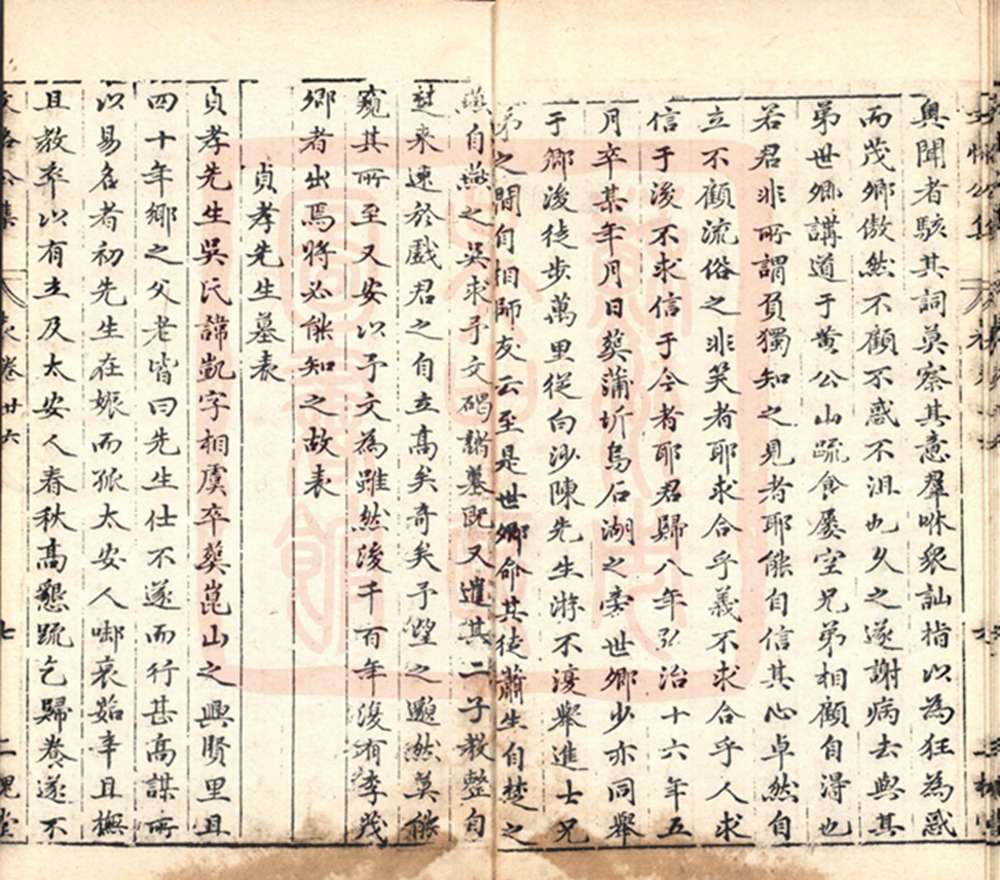 與聞者駭其詞莫察其意羣咻衆訕指以為狂為惑
而茂卿傲然不顧不惑不沮也久之遂謝病去與其
弟世卿講道于黄公山疏食屡空兄弟相顧自得也
若君非所謂負獨知之見者耶能自信其心卓然自
立不顧流俗之非笑者耶求合乎義不求合乎人求
信于後不求信于今者耶君歸八年弘治十六年五
月卒某年月日葬蒲圻烏石湖之旁世卿少亦同舉
于鄉後徒步萬里從白沙陳先生游不復舉進士兄
弟之間自相師友云至是世卿命其徒蕭生自楚之
燕自燕之吳求予文碣諸墓既又遣其二子教整自
楚來速於戲君之自立高矣奇矣予望之邈然莫能
窺其所至又安以予文為雖然後千百年復有李茂
卿者出焉將必能知之故表
貞孝先生墓表
貞孝先生吳氏諱凱字相虞卒葬崑山之興賢里且
四十年鄉之父老皆曰先生仕不遂而行甚高謀所
以易名者初先生在娠而孤太安人啣哀茹辛且撫
且教卒以有立及太安人春秋高懇疏乞歸養遂不
文恪公集 表卷廿六 七 三槐堂